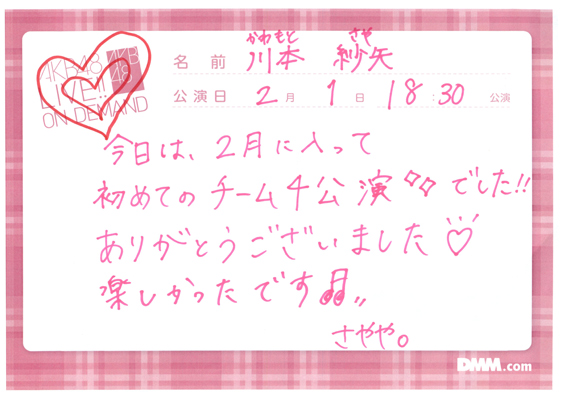 AKB48
LIVE!!
ON DEMAND
AKB
48
かわもと さや
名前 川本 紗矢
公演日 2月 1日 18:30 公演
今日は、2月に入って
初めての チーム4公演でした!!
ありがとうございました♡
楽しかったです♫,,
さやや。
DMM.com